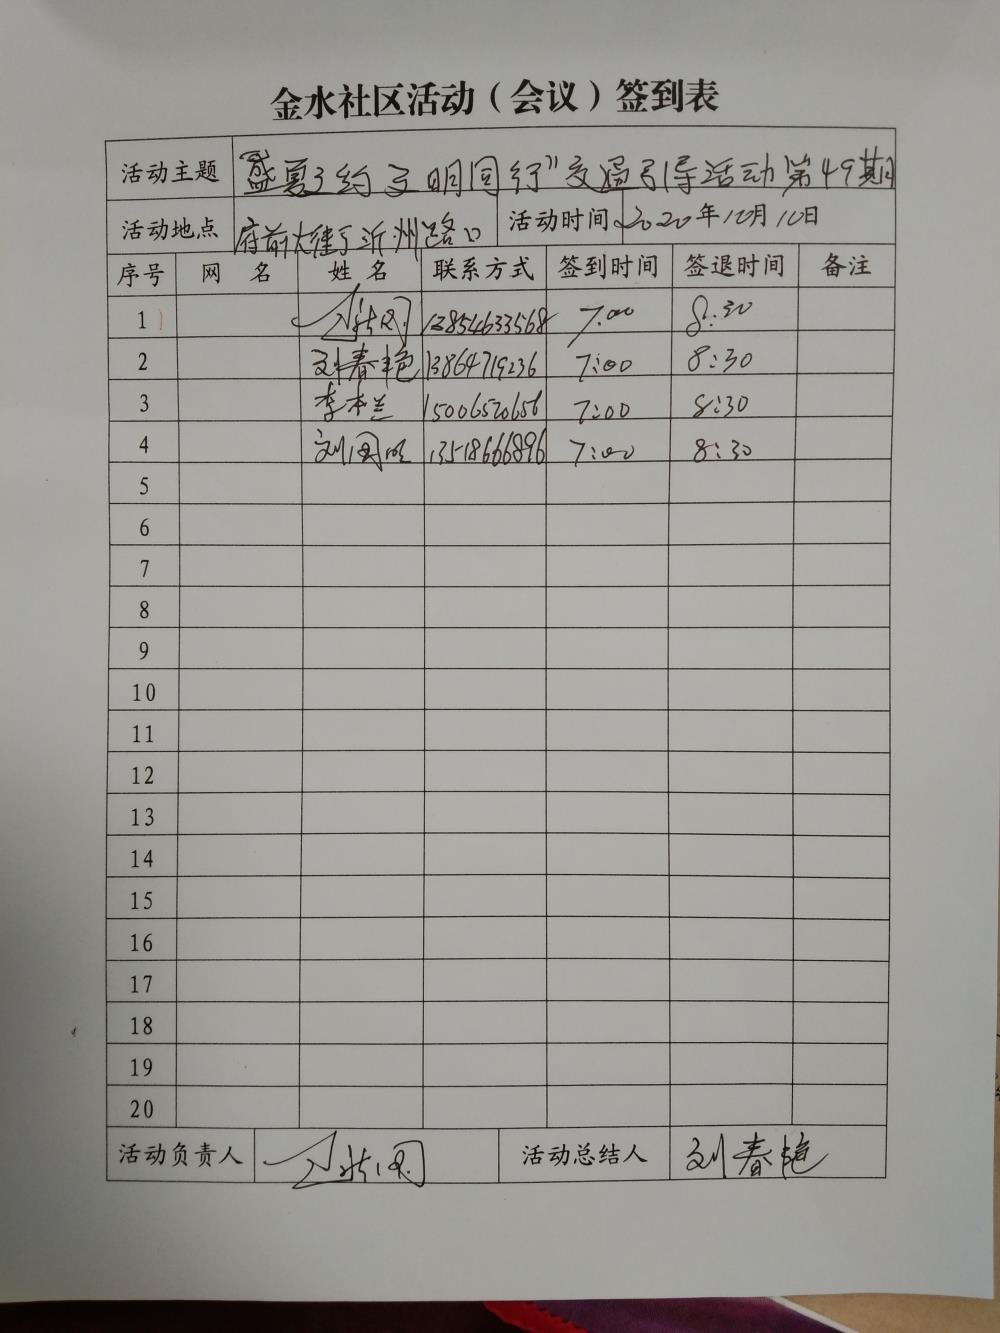 金水社区活动（会议）签到表
活动主题 "盛夏之约 文明同行"交通引导活动第49期
活动地点 府前大街与沂州路口 活动时间 2020年10月10日
序号 网名 姓名 联系方式 签到时间 签退时间 备注
1 13854633568 7:00 8:30
2 刘春艳 13864719236 7:00 8:30
3 李本兰 15006520656 7:00 8:30
4 刘国明 13518666896 7:00 8:30
5
6
7
8
9
10
11
12
13
14
15
16
17
18
19
20
活动负责人 活动总结人 刘春艳